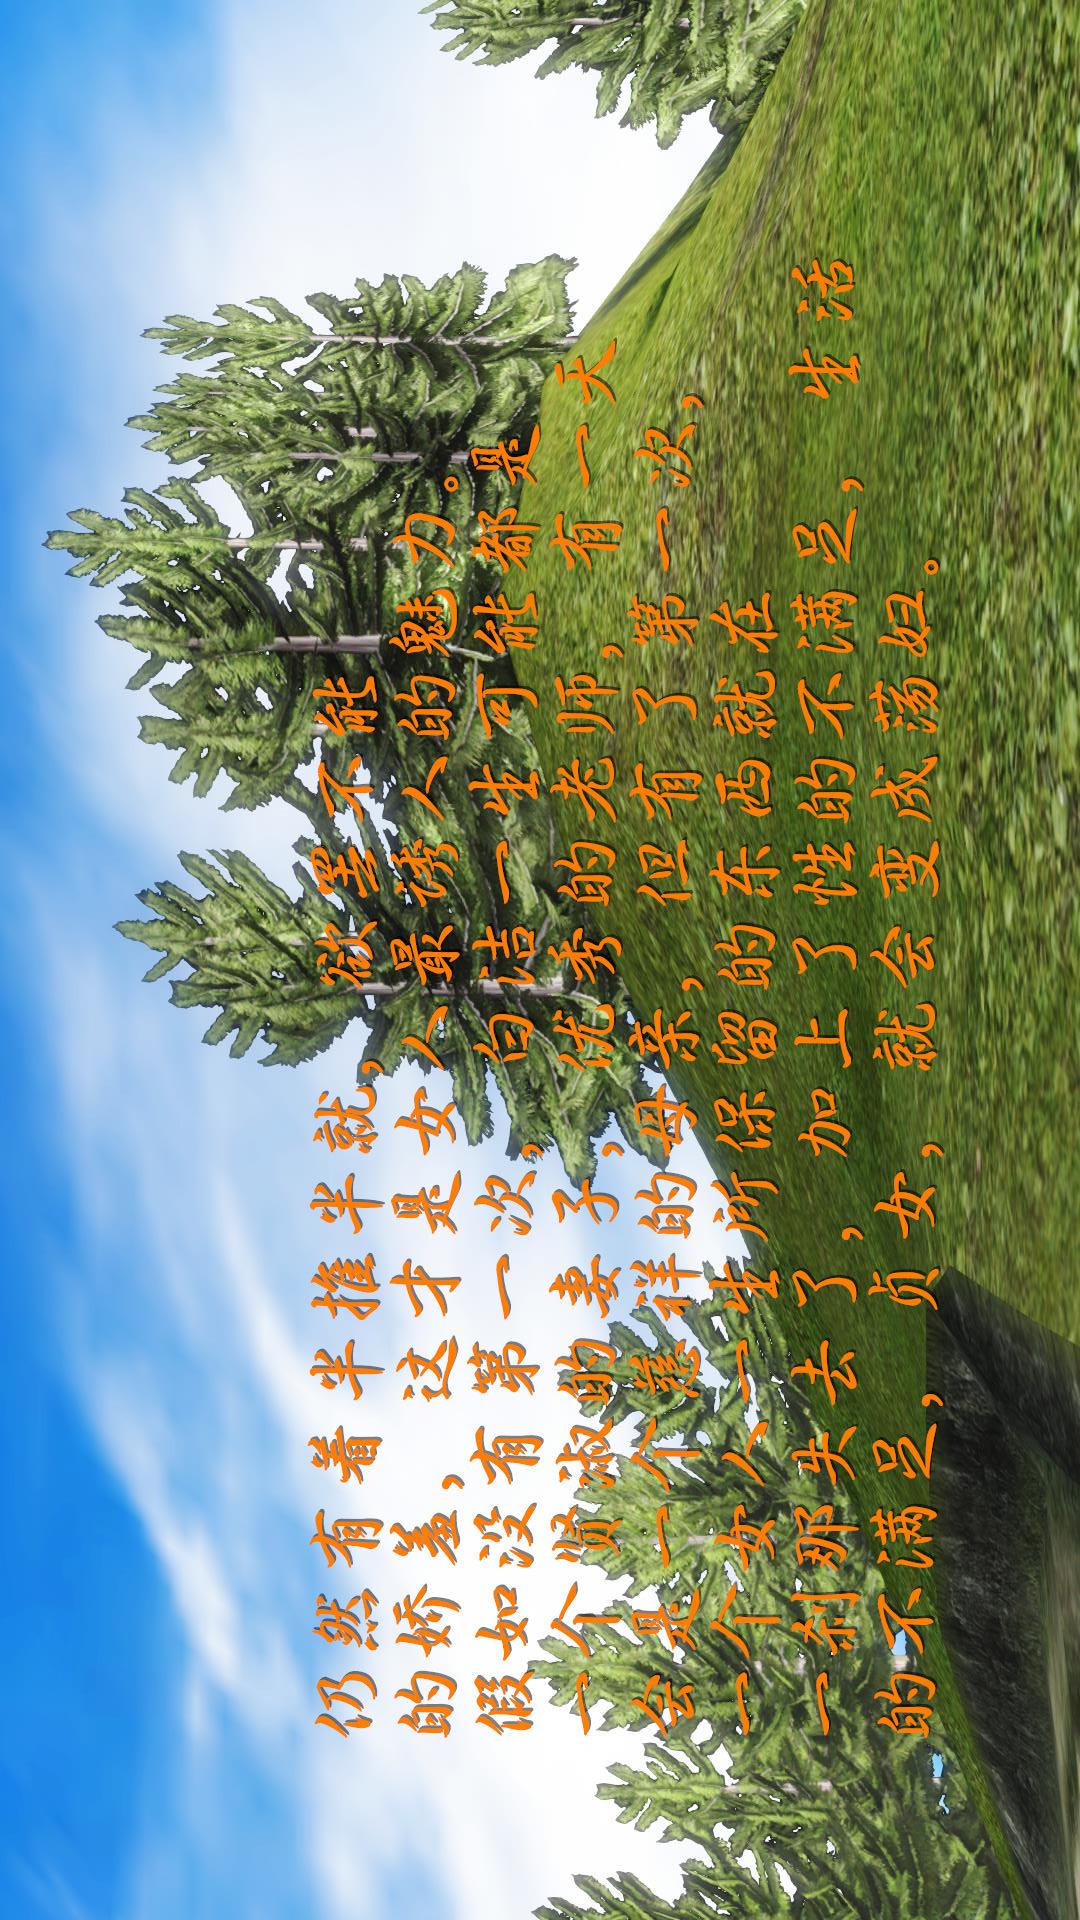 仍然有着半推半就，欲罢不能
的娇羞，这才是女人最诱人的魅力。
假如没有第一次，白洁一生可能都是
一个贤淑的妻子，优秀的老师，有一天
会是一个慈祥的母亲，但有了第一次，
一个女人一生所保留的东西就在
一刹那失去了，加上了性的不满足，生活
的不满足，贞女，就会变成荡妇。